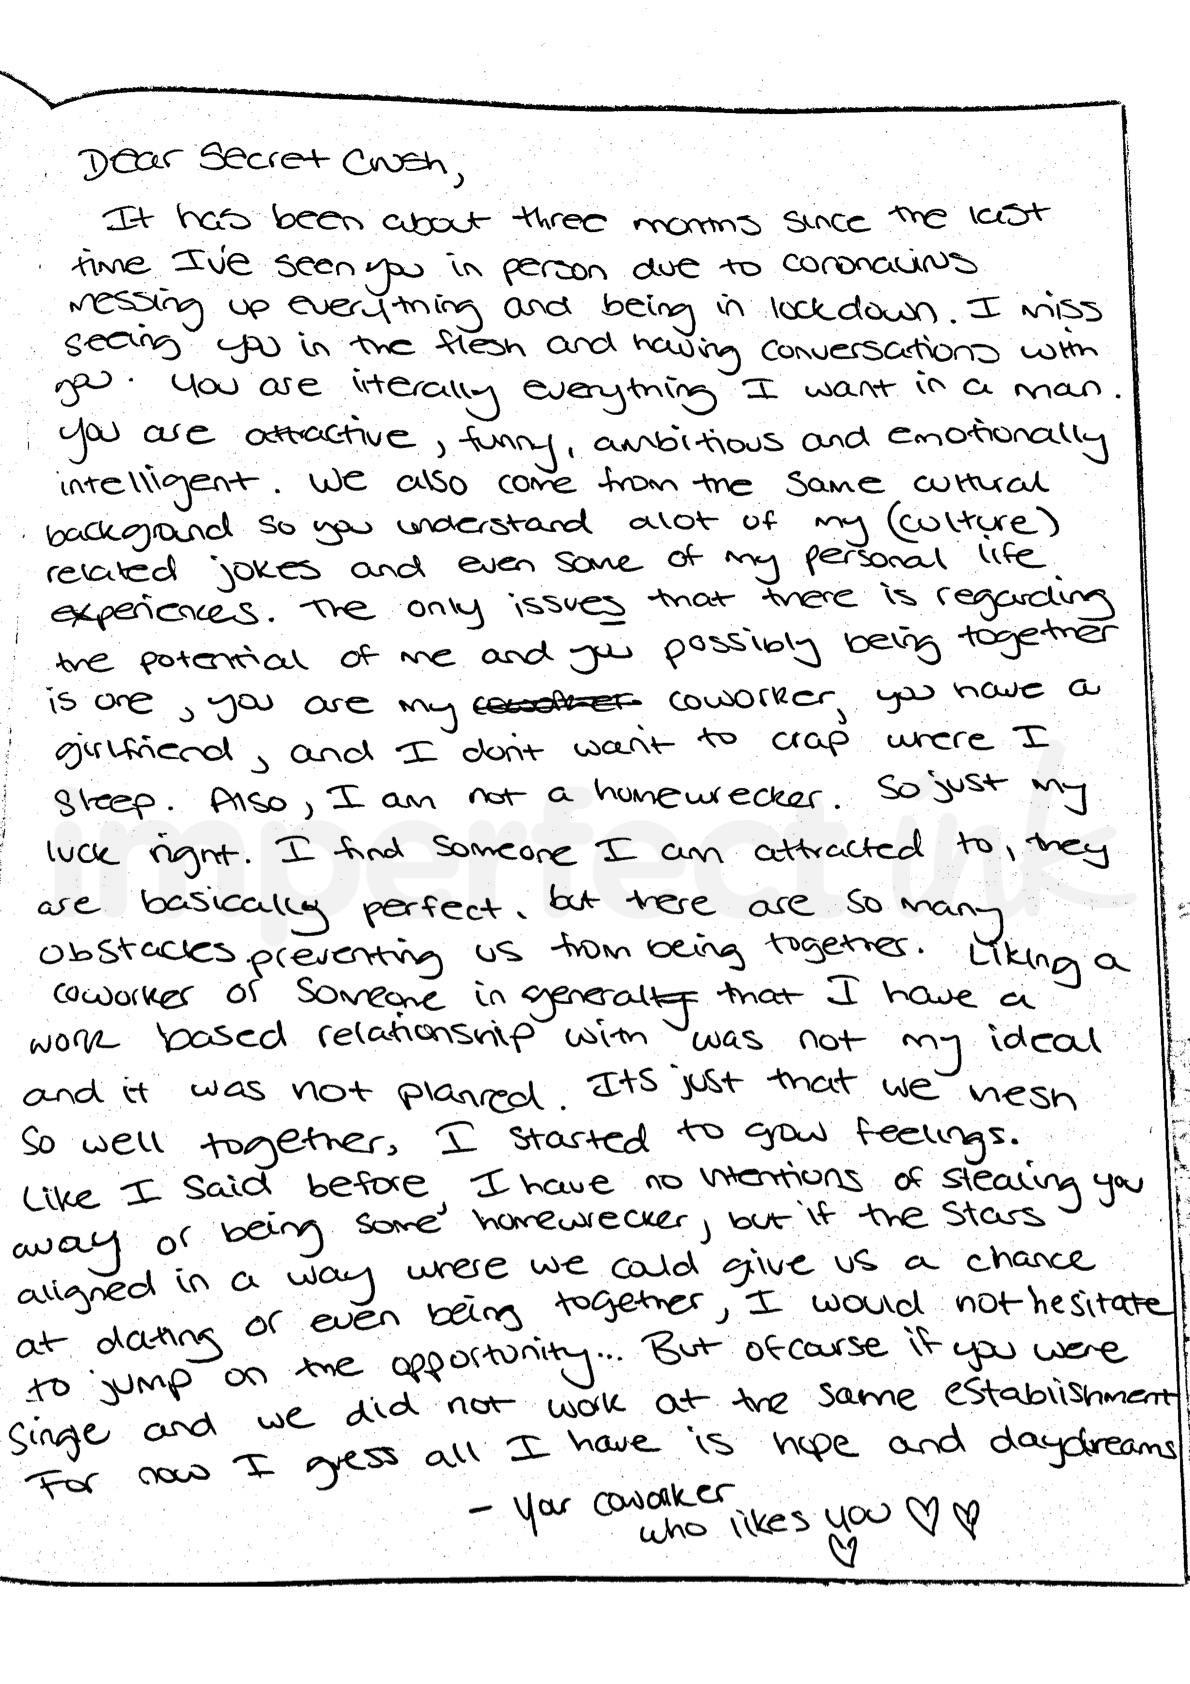 Dear Secret Crush,
It has been about three months since the last
time I've seen you in person due to coronavirus
messing up everything and being in lockdown. I miss
seeing you in the flesh and having conversations with
you. You are literally everything I want in a man.
You are attractive, funny, ambitious and emotionally
intelligent. We also come from the same cultural
background so you understand alot of my (culture)
related jokes and even some of my personal life
experiences. The only issues that there is regarding
the potential of me and you possibly being together
is one, you are my coworker, you have a
girlfriend, and I don't want to crap where I
sleep. Also, I am not a homewrecker. So just my
luck right. I find someone I am attracted to, they
are basically perfect, but there are so many
obstacles preventing us from being together. Liking a
coworker or someone in general that I have a
work based relationship with was not my ideal
and it was not planned. Its just that we mesh
so well together, I started to grow feelings.
Like I said before, I have no intentions of stealing you
away or being some homewrecker, but if the stars
aligned in a way where we could give us a chance
at dating or even being together, I would not hesitate
to jump on the opportunity... But of course if you were
single and we did not work at the same establishment
For now I guess all I have is hope and daydreams
- Your coworker
who likes you ♡ ♡
♡
imperfect ink